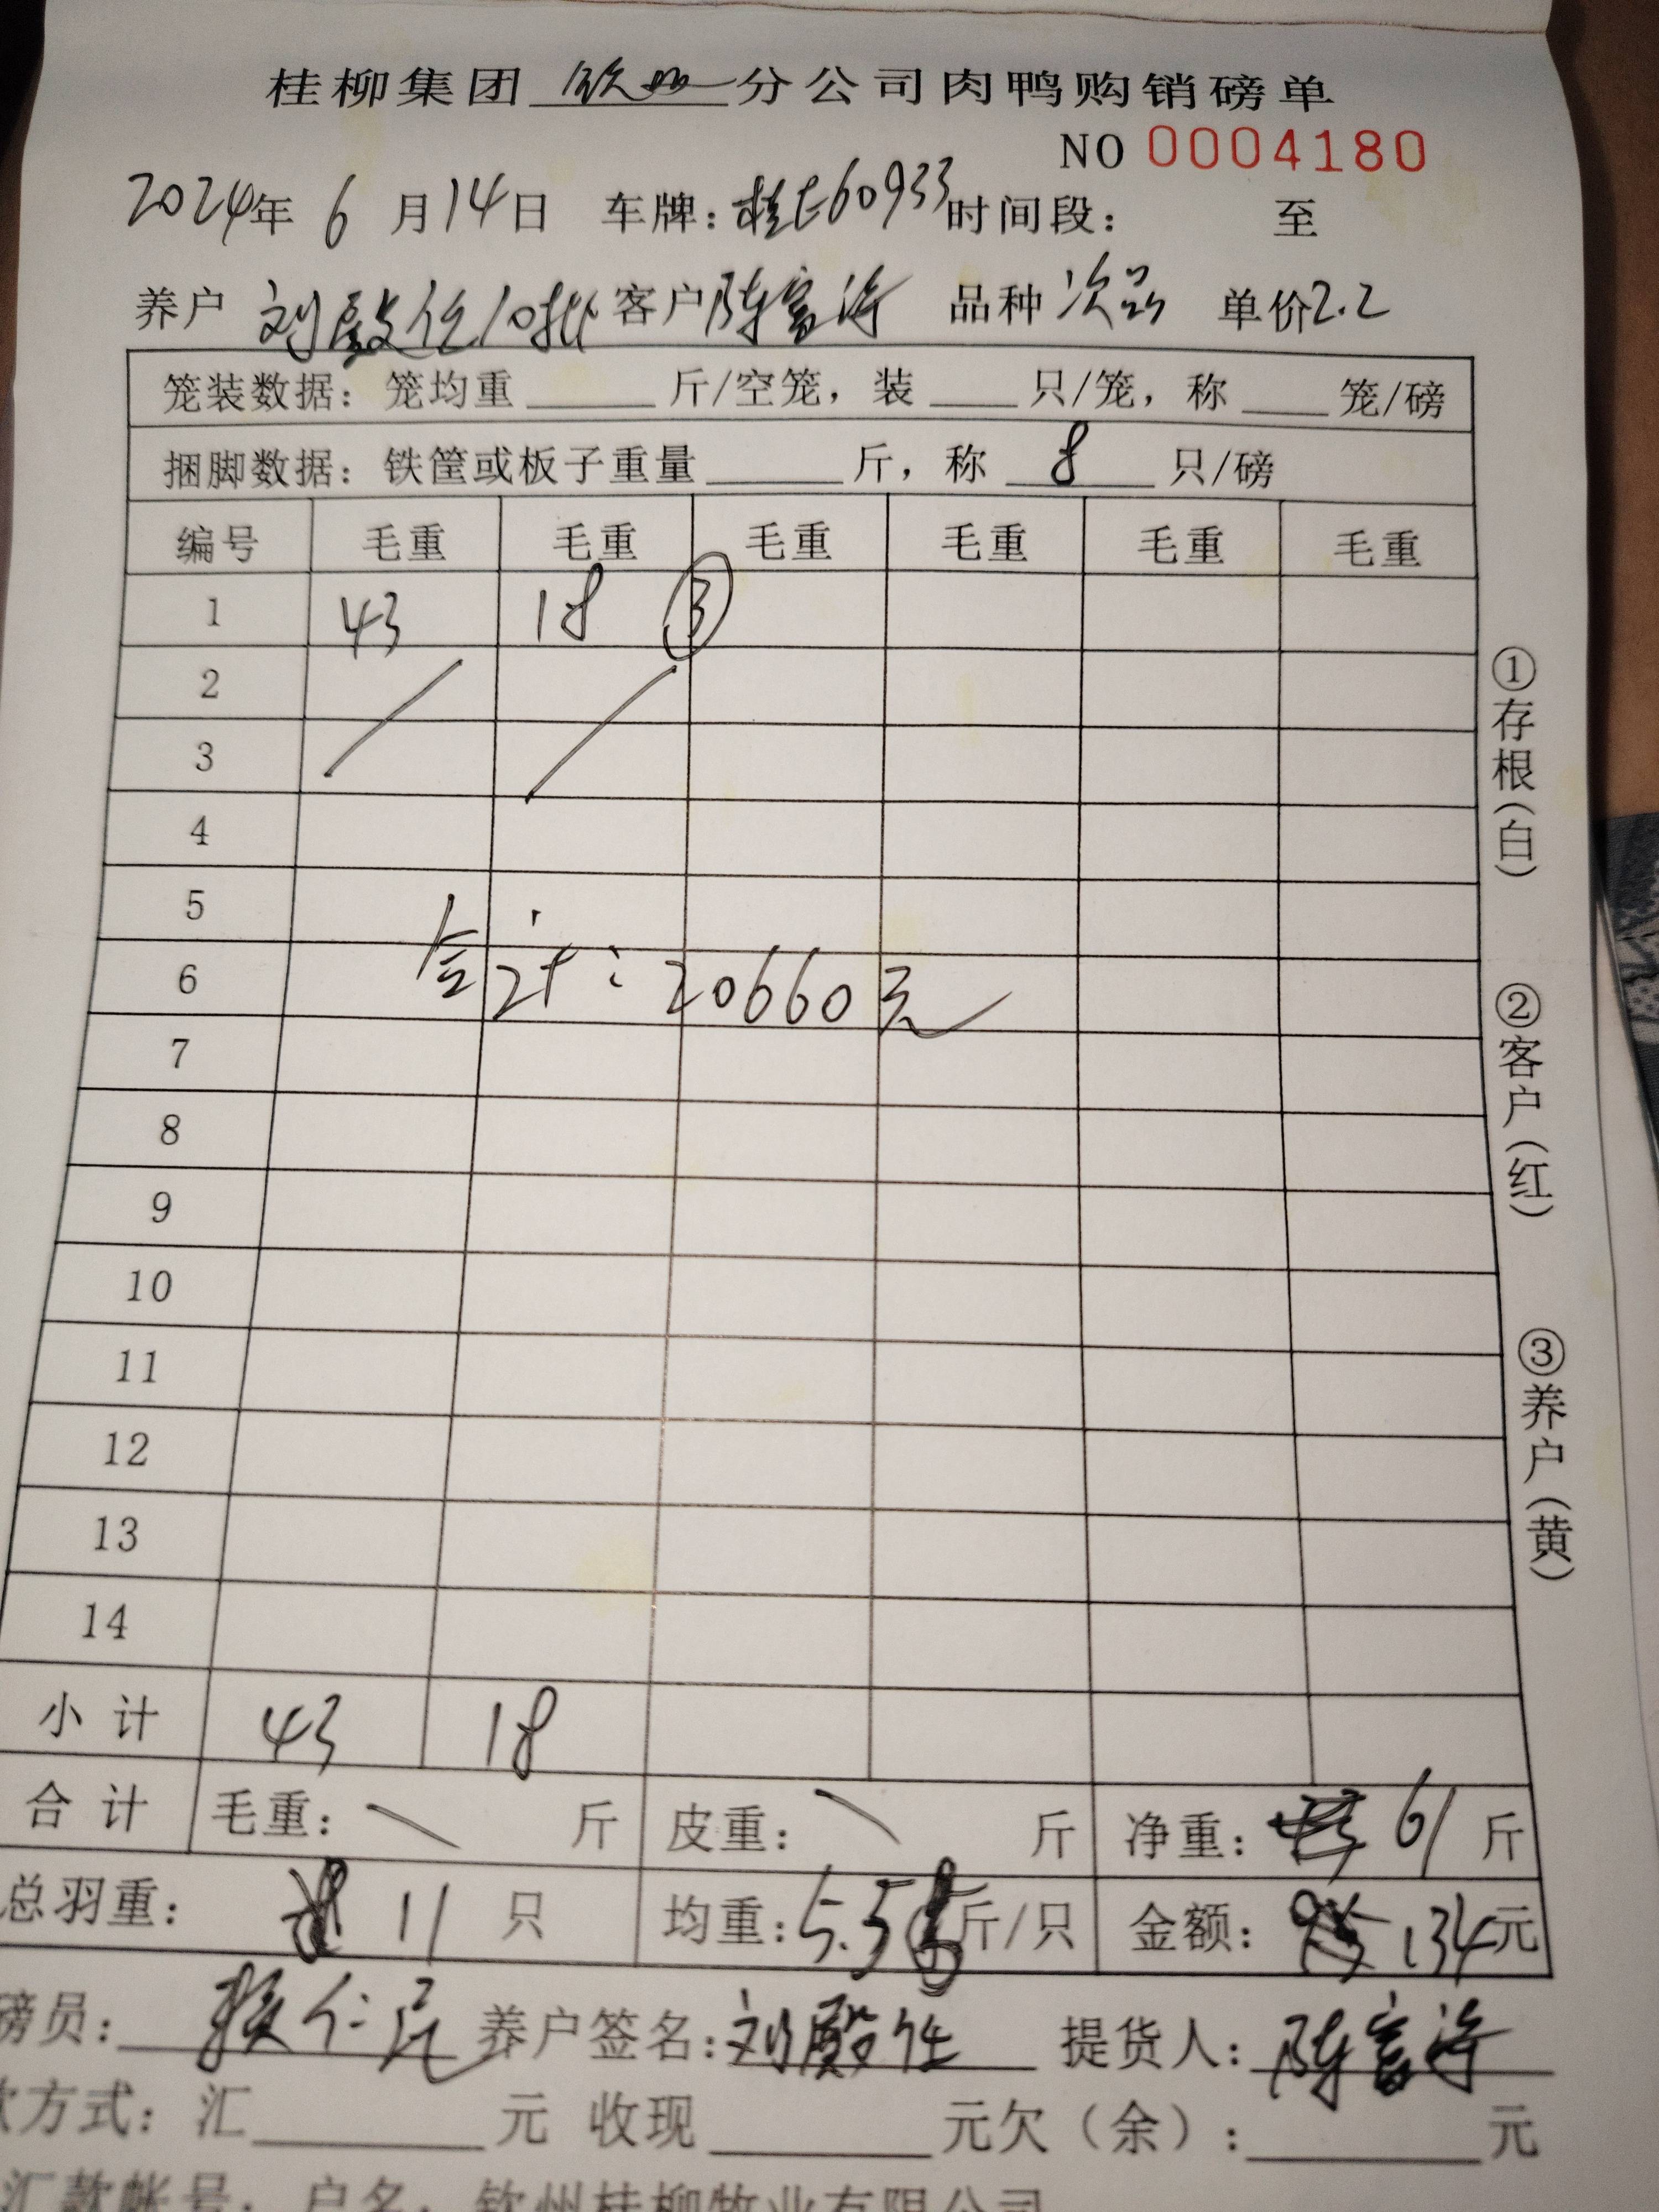 桂柳集团 钦州 分公司肉鸭购销磅单
NO 0004180
2024年 6 月 14 日 车牌：桂E60933 时间段： 至
养户 刘殿任10批 客户 陈富海 品种 次品 单价 2.2
笼装数据：笼均重 斤/空笼，装 只/笼，称 笼/磅
捆脚数据：铁筐或板子重量 斤，称 8 只/磅
编号 毛重 毛重 毛重 毛重 毛重 毛重
1 43 18 ③
2
3
4
5
6 合计：20660元
7
8
9
10
11
12
13
14
小计 43 18
合计 毛重： 斤 皮重： 斤 净重： 61 斤
总羽重： 11 只 均重：5.5 斤/只 金额： 134元
磅员： 仁 养户签名：刘殿任 提货人：陈富海
款方式：汇 元 收现 元欠（余）： 元
汇款帐号：户名：钦州桂柳牧业有限公司
①存根（白）
②客户（红）
③养户（黄）